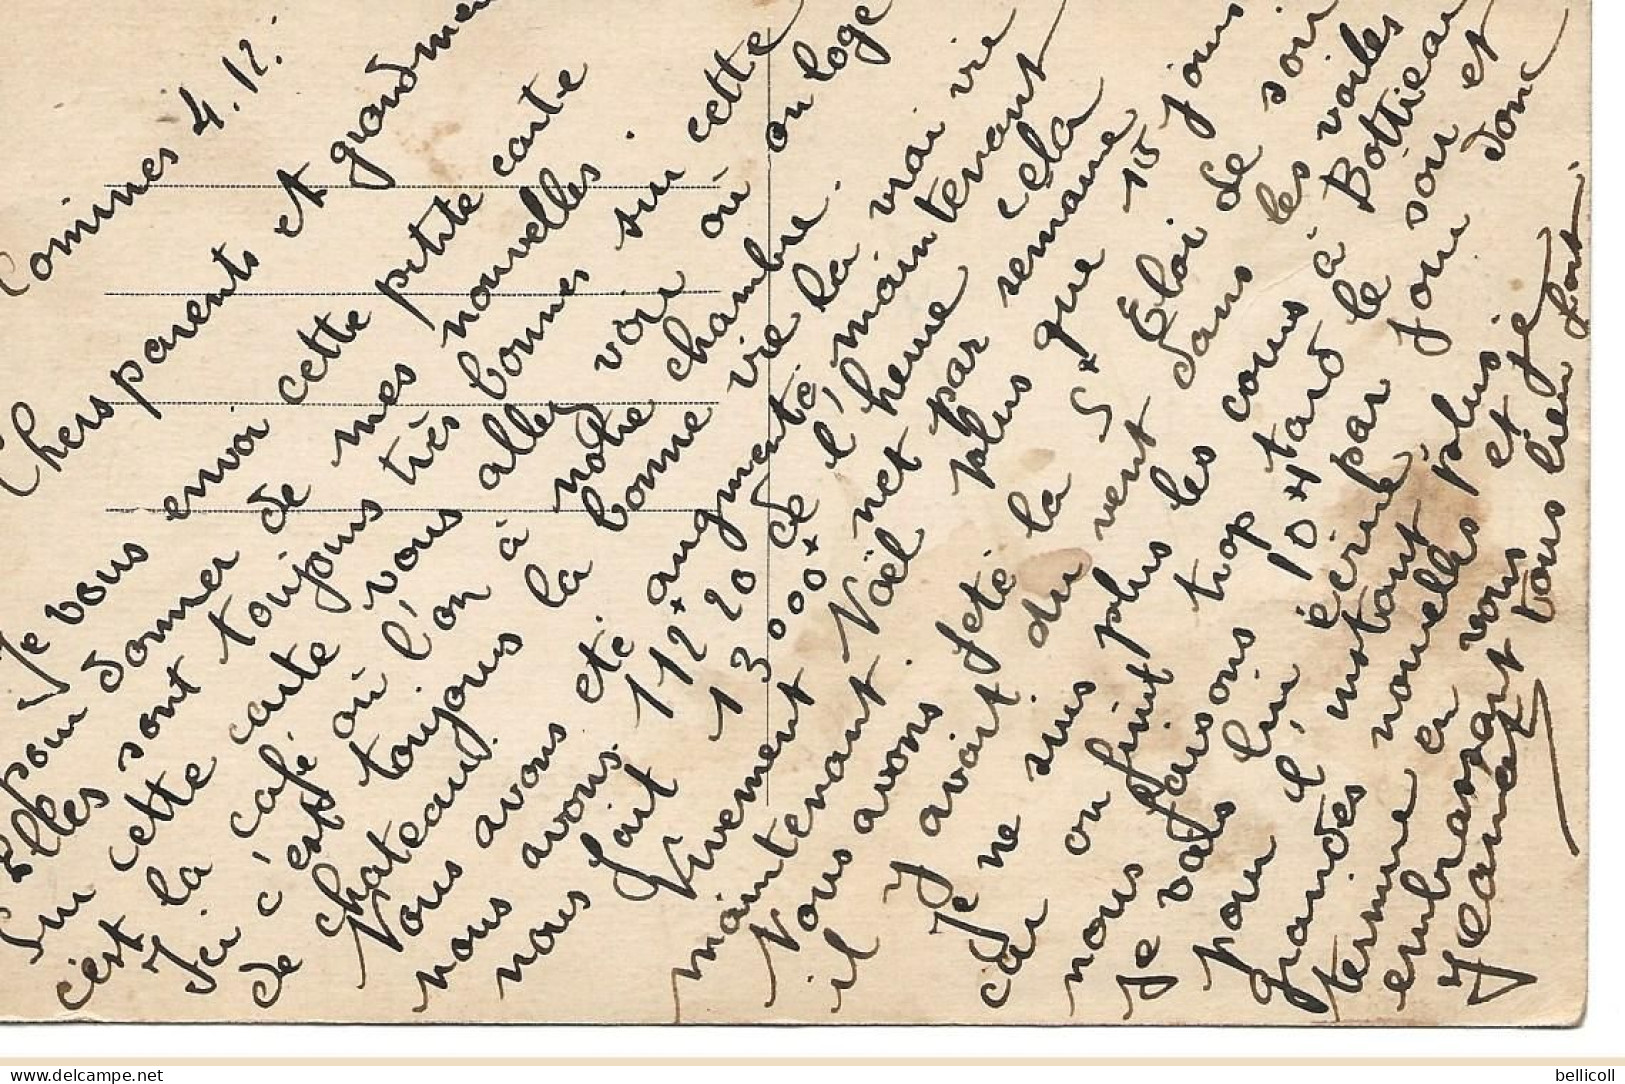 Comines 4.12.
Chers parents et grandmère
Je vous envoi cette petite carte
pour donner de mes nouvelles.
Elles sont toujours très bonnes sur cette
Sur cette carte vous allez voir où on loge
c'est la café où l'on à notre chambre.
Ici c'est toujours la bonne vie la vrai vie
de chateau.
Nous avons eté augmenté maintenant
nous avons 112 x 20 de l'heure cela
nous fait 13000 x net par semaine
Vivement Noël plus que 15 jours
maintenant.
Nous avons feté la St Eloi de soir
il y avait du vent dans les voiles
Je ne suis plus les cours à Bottieau
car on finit trop tard le soir et
nous faisons 10 H par jour donc
je vais lui écrire
pour l'instant plus
grandes nouvelles plus je
termine en vous et je
embrassant tous bien fort.
Jeannot
www.delcampe.net
bellicoll